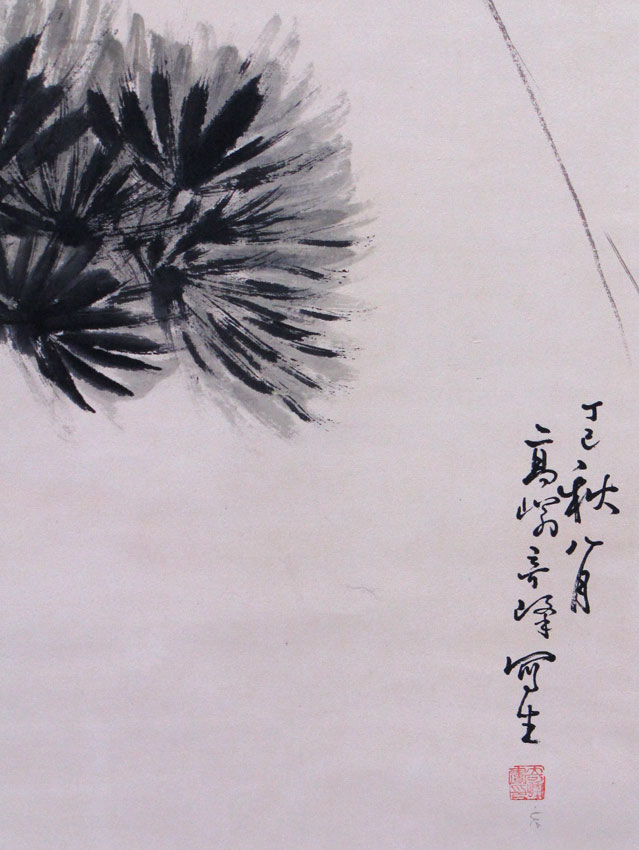 丁巳秋八月
高嵡奇峰寫生